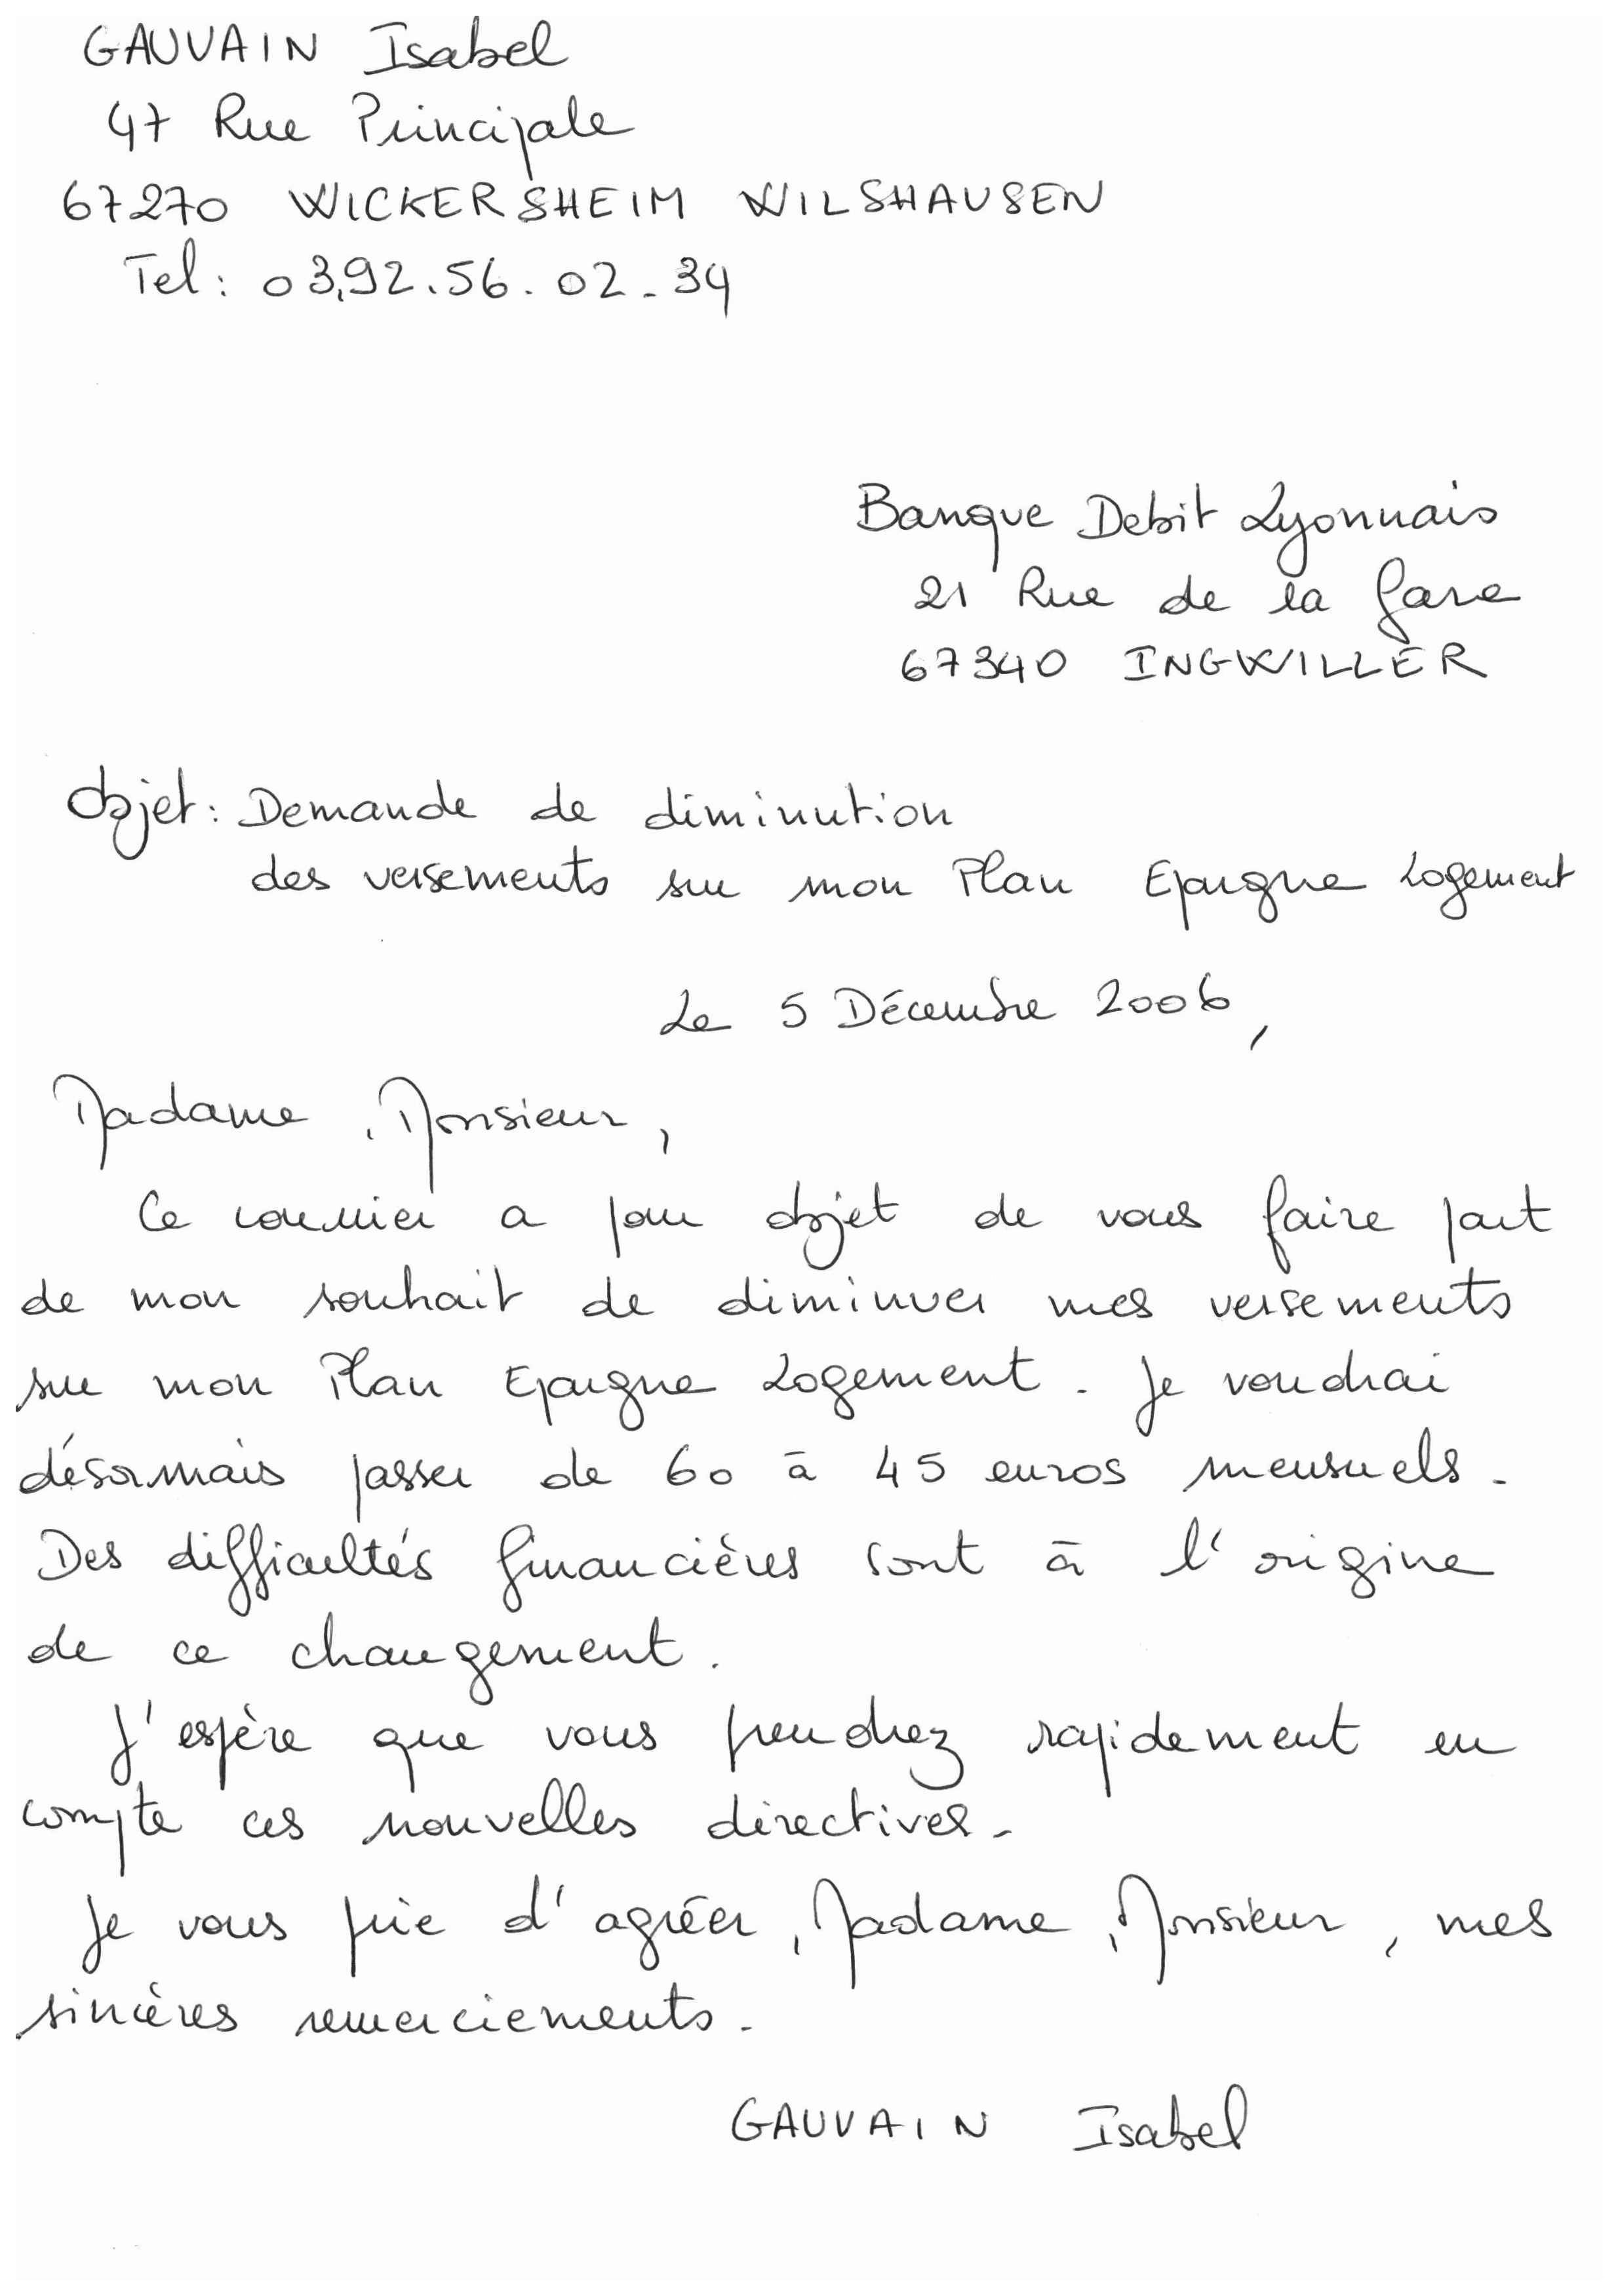 GAUVAIN Isabel
47 Rue Principale
67270 WICKERSHEIM WILSHAUSEN
Tel: 03.92.56.02.34
Banque Debit Lyonnais
21 Rue de la Gare
67340 INGWILLER
Objet: Demande de diminution
des versements sur mon Plan Epargne Logement
Le 5 Décembre 2006,
Madame, Monsieur,
Ce courrier a pour objet de vous faire part
de mon souhait de diminuer mes versements
sur mon Plan Epargne Logement. Je voudrai
désormais passer de 60 à 45 euros mensuels.
Des difficultés financières sont à l'origine
de ce changement.
J'espère que vous prendrez rapidement en
compte ces nouvelles directives.
Je vous prie d'agréer, Madame, Monsieur, mes
sincères remerciements.
GAUVAIN Isabel